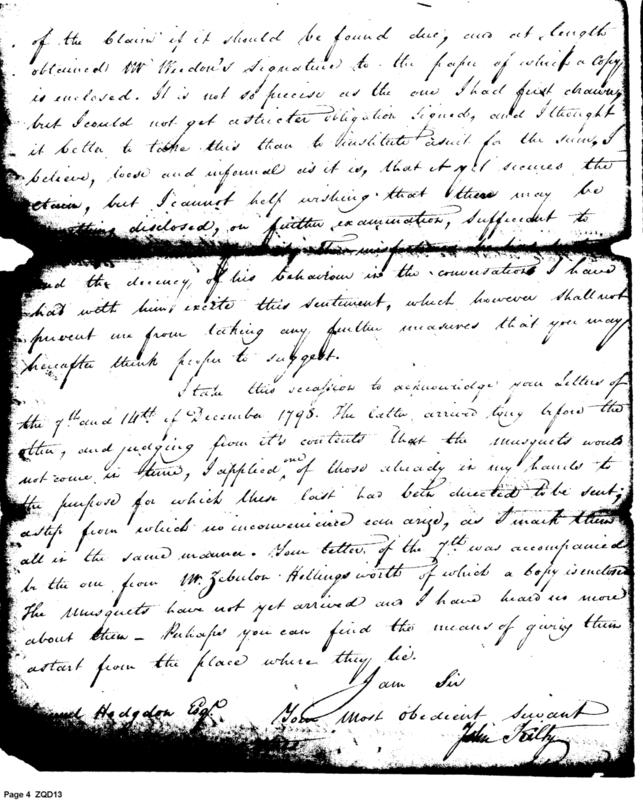 of the Claim if it should be found due, and at length
obtained Mr Weedon's signature to the paper of which a Copy
is enclosed. It is not so precise as the one I had first drawn,
but I could not get a stricter obligation signed, and I thought
it better to take this than to institute a suit for the sum, I
believe, loose and informal as it is, that it yet secures the
claim, but I cannot help wishing that there may be
disclosed, on further examination, sufficient to
and the decency of his behaviour in the conversations I have
had with him, excite this sentiment, which however shall not
prevent me from taking any further measures that you may
hereafter think proper to suggest.
I take this occasion to acknowledge your Letters of
the 7th and 14th of December 1798. The latter arrived long before the
other, and judging from it's contents that the musquets would
not come in time, I applied one of those already in my hands to
the purpose for which these last had been directed to be sent;
a step from which no inconvenience can arize, as I mark them
all in the same manner. Your letter of the 7th was accompanied
by the one from Mr. Zebulon Hollingsworth of which a Copy is enclosed
The Musquets have not yet arrived and I have heard no more
about them - Perhaps you can find the means of giving them
a start from the place where they lie.
I am Sir
Hodgdon Esqr. Your most obedient servant
John Kilty
Page 4 ZQD13